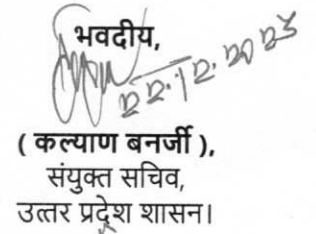 भवदीय,
22.12.2023
( कल्याण बनर्जी ),
संयुक्त सचिव,
उत्तर प्रदेश शासन।